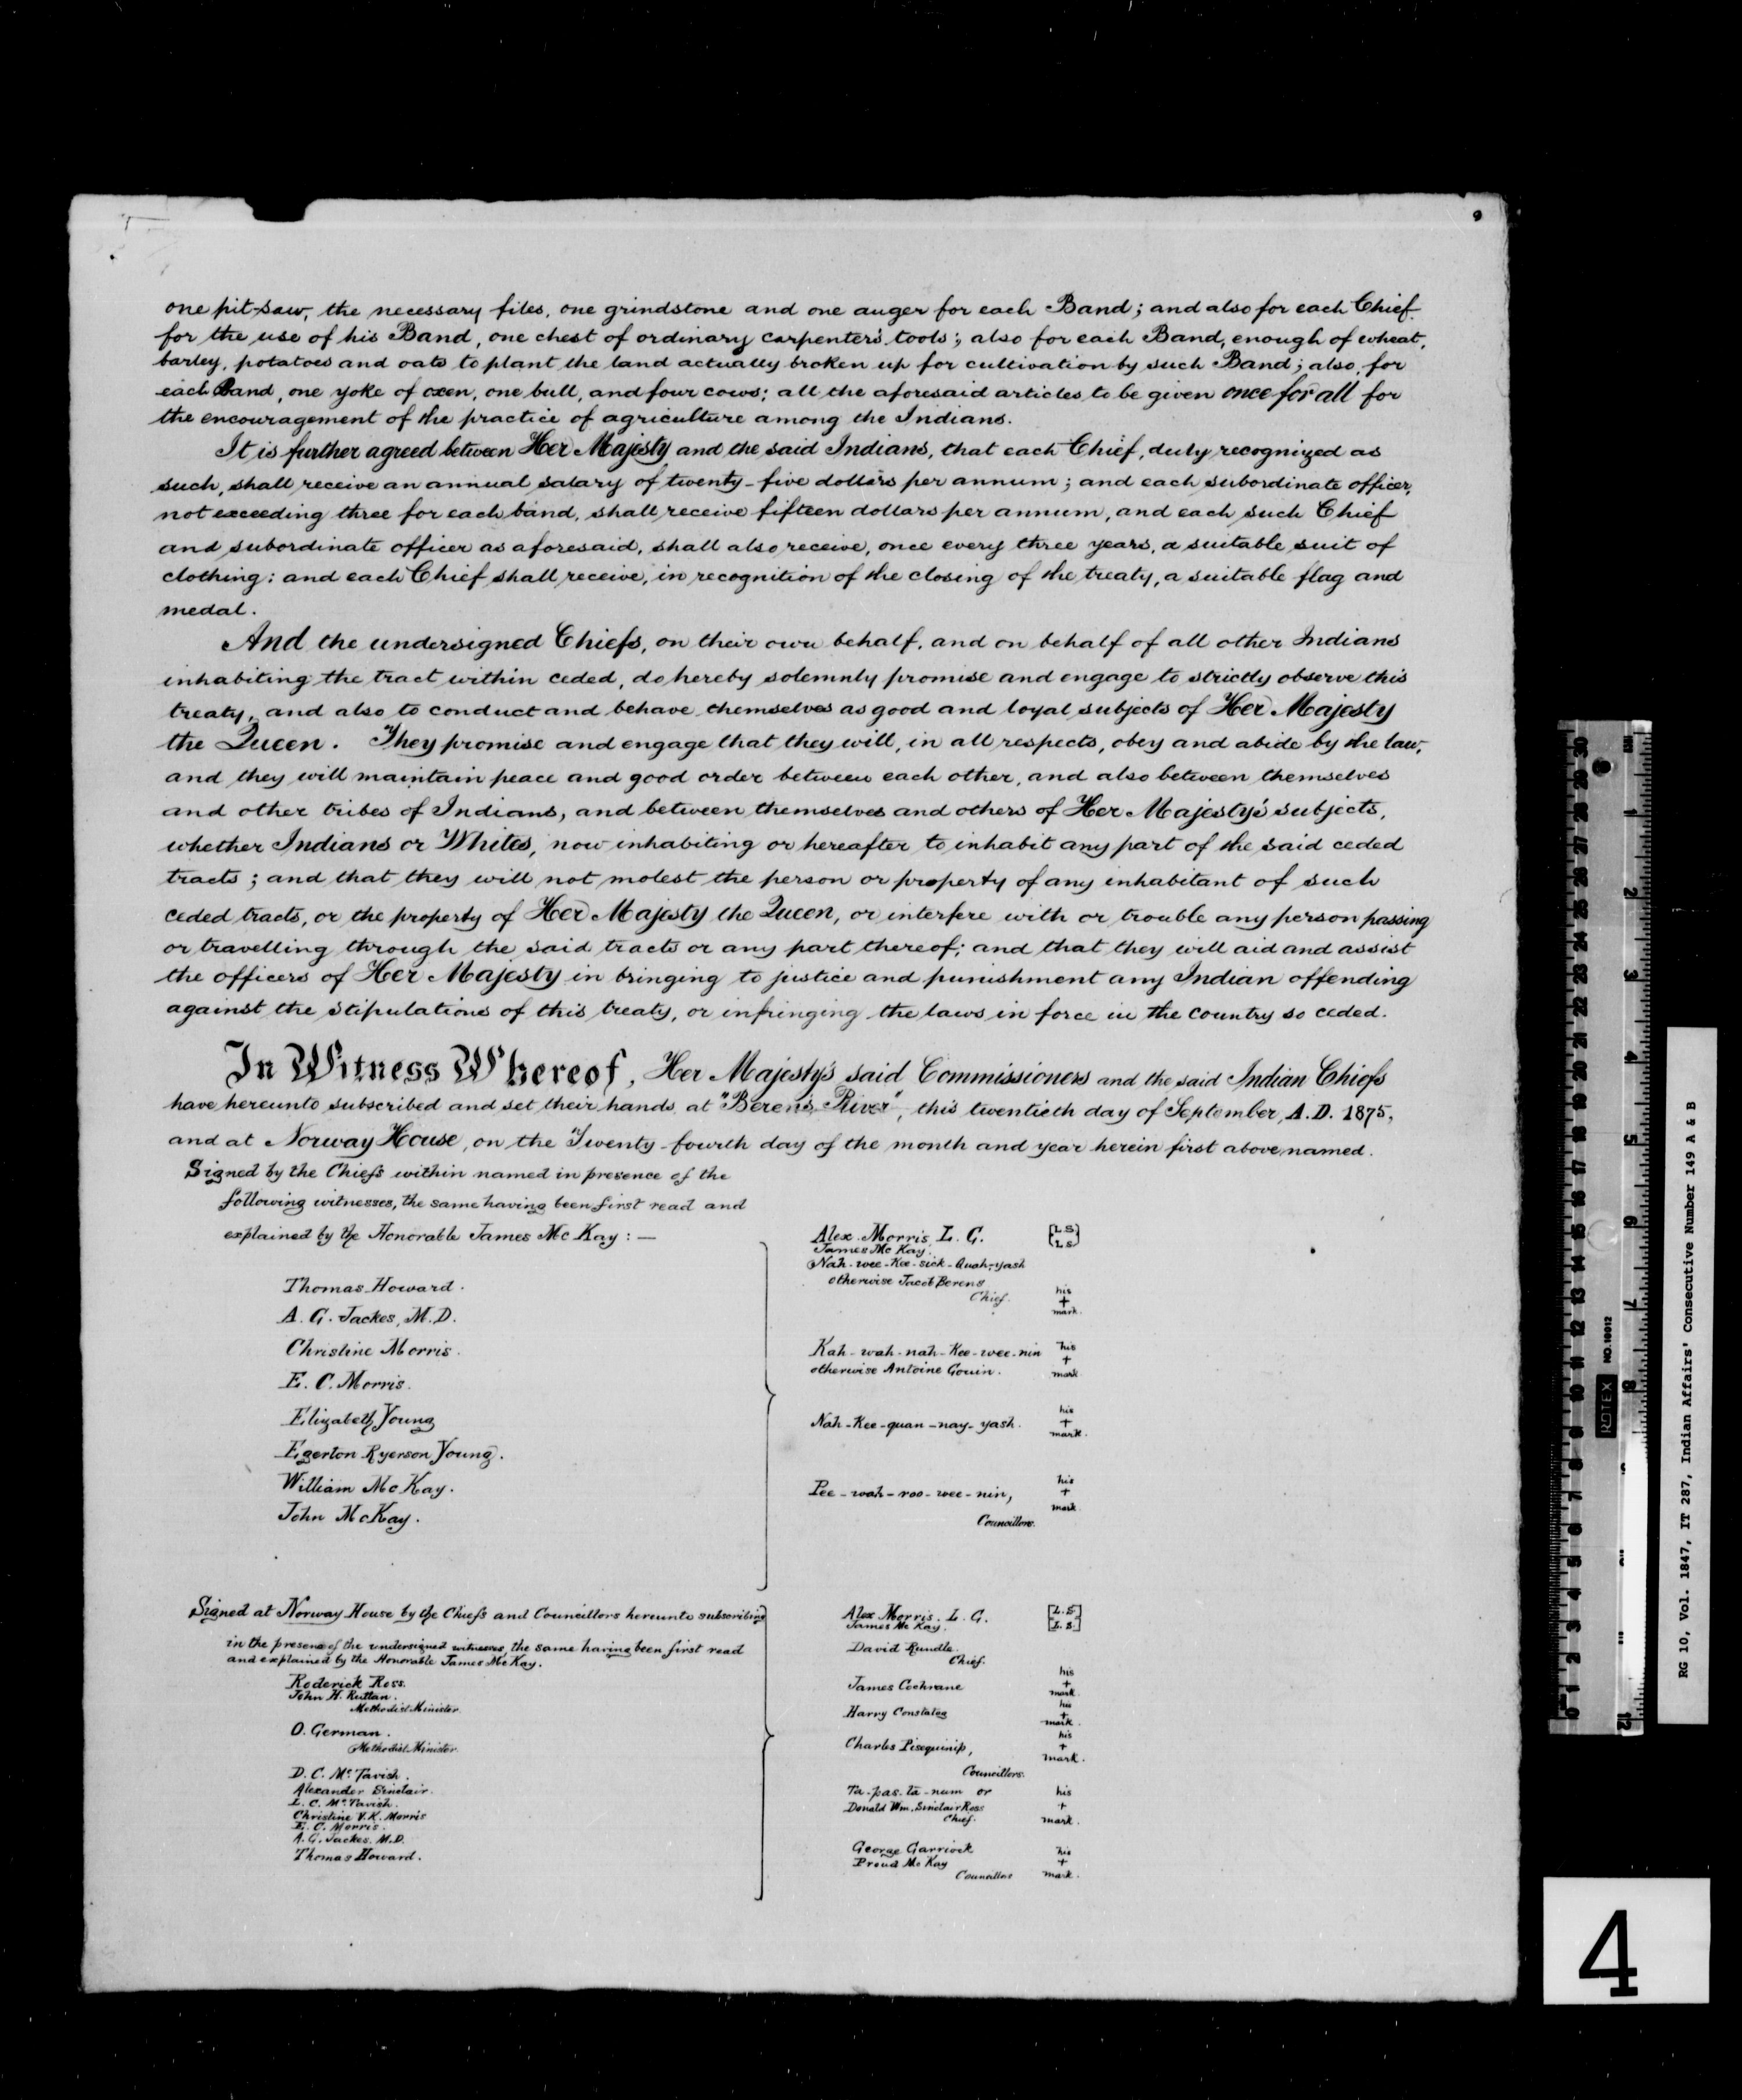 one pit-saw, the necessary files, one grindstone and one auger for each Band; and also for each Chief
for the use of his Band, one chest of ordinary carpenter's tools; also for each Band, enough of wheat,
barley, potatoes and oats to plant the land actually broken up for cultivation by such Band; also, for
each Band, one yoke of oxen, one bull, and four cows; all the aforesaid articles to be given once for all for
the encouragement of the practice of agriculture among the Indians.
It is further agreed between Her Majesty and the said Indians, that each Chief, duly recognized as
such, shall receive an annual salary of twenty-five dollars per annum; and each subordinate officer,
not exceeding three for each band, shall receive fifteen dollars per annum, and each such Chief
and subordinate officer as aforesaid, shall also receive, once every three years, a suitable suit of
clothing; and each Chief shall receive, in recognition of the closing of the treaty, a suitable flag and
medal.
And the undersigned Chiefs, on their own behalf, and on behalf of all other Indians
inhabiting the tract within ceded, do hereby solemnly promise and engage to strictly observe this
treaty, and also to conduct and behave themselves as good and loyal subjects of Her Majesty
the Queen. They promise and engage that they will, in all respects, obey and abide by the law,
and they will maintain peace and good order between each other, and also between themselves
and other tribes of Indians, and between themselves and others of Her Majesty's subjects,
whether Indians or Whites, now inhabiting or hereafter to inhabit any part of the said ceded
tracts; and that they will not molest the person or property of any inhabitant of such
ceded tracts, or the property of Her Majesty the Queen, or interfere with or trouble any person passing
or travelling through the said tracts or any part thereof; and that they will aid and assist
the officers of Her Majesty in bringing to justice and punishment any Indian offending
against the stipulations of this treaty, or infringing the laws in force in the country so ceded.
In Witness Whereof, Her Majesty's said Commissioners and the said Indian Chiefs
have hereunto subscribed and set their hands at "Beren's River", this twentieth day of September, A.D. 1875,
and at Norway House, on the Twenty-fourth day of the month and year herein first above named.
Signed by the Chiefs within named in presence of the
following witnesses, the same having been first read and
explained by the Honorable James McKay:—
Thomas Howard.
A. G. Jackes, M.D.
Christine Morris.
E. C. Morris.
Elizabeth Young
Egerton Ryerson Young.
William McKay.
John McKay.
Alex. Morris, L. G. [L S]
James McKay. [L S]
Nah-wee-Kee-sick-Quah-yash
otherwise Jacob Berens
Chief.
his
+
mark.
Kah-wah-nah-Kee-wee-nin
otherwise Antoine Gouin.
his
+
mark
Nah-Kee-quan-nay-yash.
his
+
mark.
Pee-wah-roo-wee-nin,
his
+
mark
Councillors.
Signed at Norway House by the Chiefs and Councillors hereunto subscribing
in the presence of the undersigned witnesses, the same having been first read
and explained by the Honorable James McKay.
Roderick Ross.
John H. Ruttan.
Methodist Minister
O. German.
Methodist Minister
D. C. McTavish.
Alexander Sinclair.
L. C. McTavish.
Christine V. K. Morris
E. C. Morris.
A. G. Jackes. M.D.
Thomas Howard.
Alex Morris. L. G. [L. S.]
James McKay. [L. S.]
David Rundle.
Chief.
James Cochrane
his
+
mark
Harry Constatag
his
+
mark.
Charles Pisequinip,
his
+
mark.
Councillors.
Ta-pas-ta-num or
Donald Wm. Sinclair Ross
Chief.
his
+
mark.
George Garriock
Proud McKay
Councillors
his
+
mark.
RG 10, Vol. 1847, IT 287, Indian Affairs' Consecutive Number 149 A & B
ROTEX NO. 10012
30 29 28 27 26 25 24 23 22 21 20 19 18 17 16 15 14 13 12 11 10 9 8 7 6 5 4 3 2 1 0
1 2 3 4 5 6 7 8 12
4